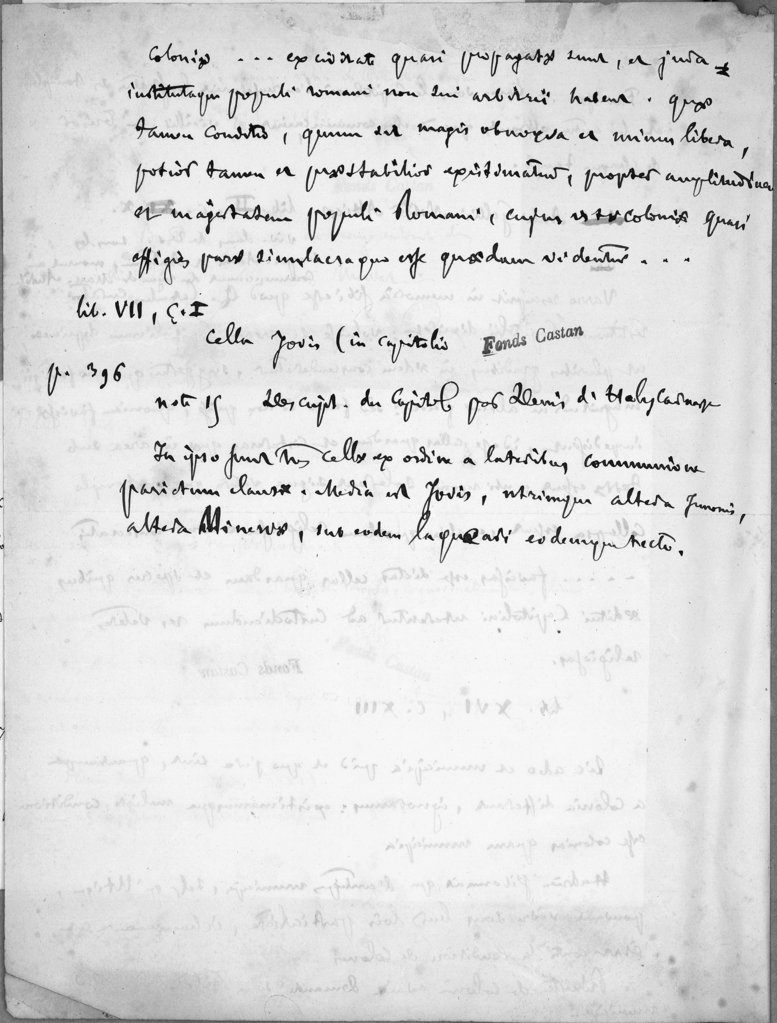 coloniæ ... ex civitate quasi propagatæ sunt, et jura
institutaque populi romani non sui arbitrii habent. quæ
tamen conditio, quum sit magis obnoxia et minus libera,
potior tamen et præstabilior existimatur, propter amplitudinem
et majestatem populi Romani, cujus istæ coloniæ quasi
effigies parvæ simulacraque esse quædam videntur...
lib. VII, c. I
Cella Jovis (in capitolio
Fonds Castan
p. 396
note 15 Descript. du Capitole par Denis d'Halycarnasse
In ipso sunt tres cellæ ex ordine a lateribus communione
parietum clausæ. Media est Jovis, utrimque altera Junonis,
altera Minervæ, sub eodem laqueari eodemque tecto.